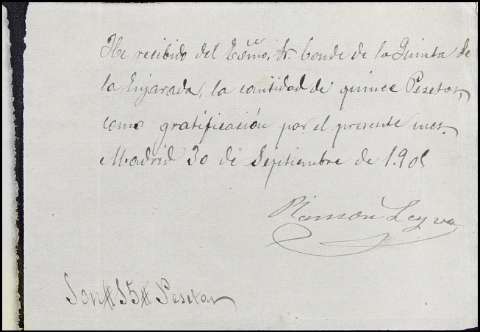 He recibido del Exmo. Sr. Conde de la Quinta de
la Enjarada, la cantidad de quince Pesetas,
como gratificación por el presente mes.
Madrid 30 de Septiembre de 1.901
Ramón Leyva
Son # 15 # Pesetas